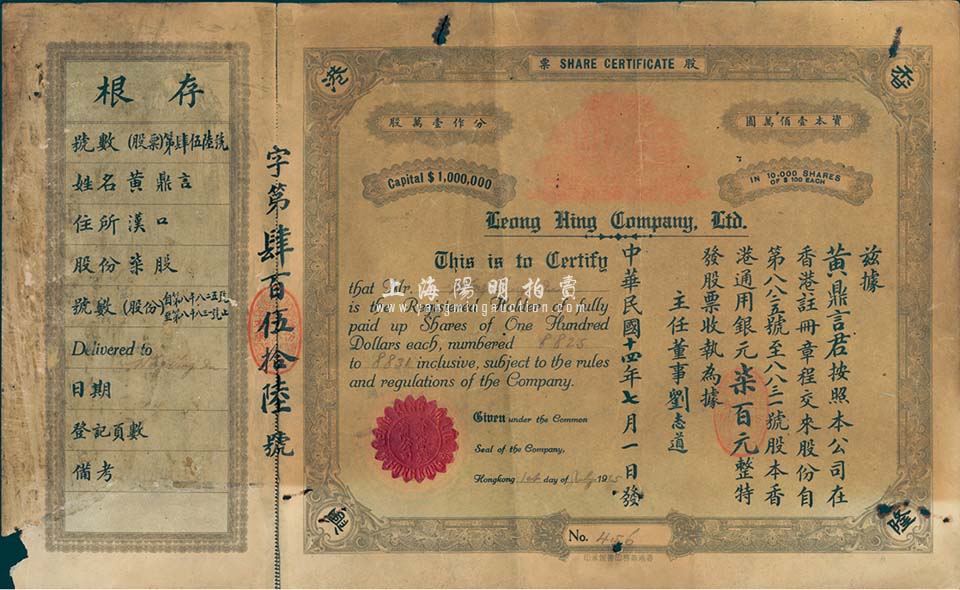 存根
號數 (股票)第肆伍陸號
姓名 黃鼎言
住所 漢口
股份 柒股
號數 (股份)
Delivered to
日期
登記頁數
備考
字第肆百伍拾陸號
股 SHARE CERTIFICATE 票
香港
隆
資本壹佰萬圓
分作壹萬股
Capital $1,000,000
IN 10,000 SHARES
OF $100 EACH
Leong Hing Company, Ltd.
This is to Certify
that Mr.
is the Registered Holder of fully
paid up Shares of One Hundred
Dollars each, numbered 8825
to 8831 inclusive, subject to the rules
and regulations of the Company.
Given under the Common
Seal of the Company,
Hongkong 1st day of July 1925
茲據
黃鼎言君按照本公司在
香港註冊章程交來股份自
第八八二五號至八八三一號股本香
港通用銀元柒百元整特
發股票收執為據
主任董事劉志道
中華民國十四年七月一日發
No. 456
上海陽明拍賣
www.yangmingauction.com